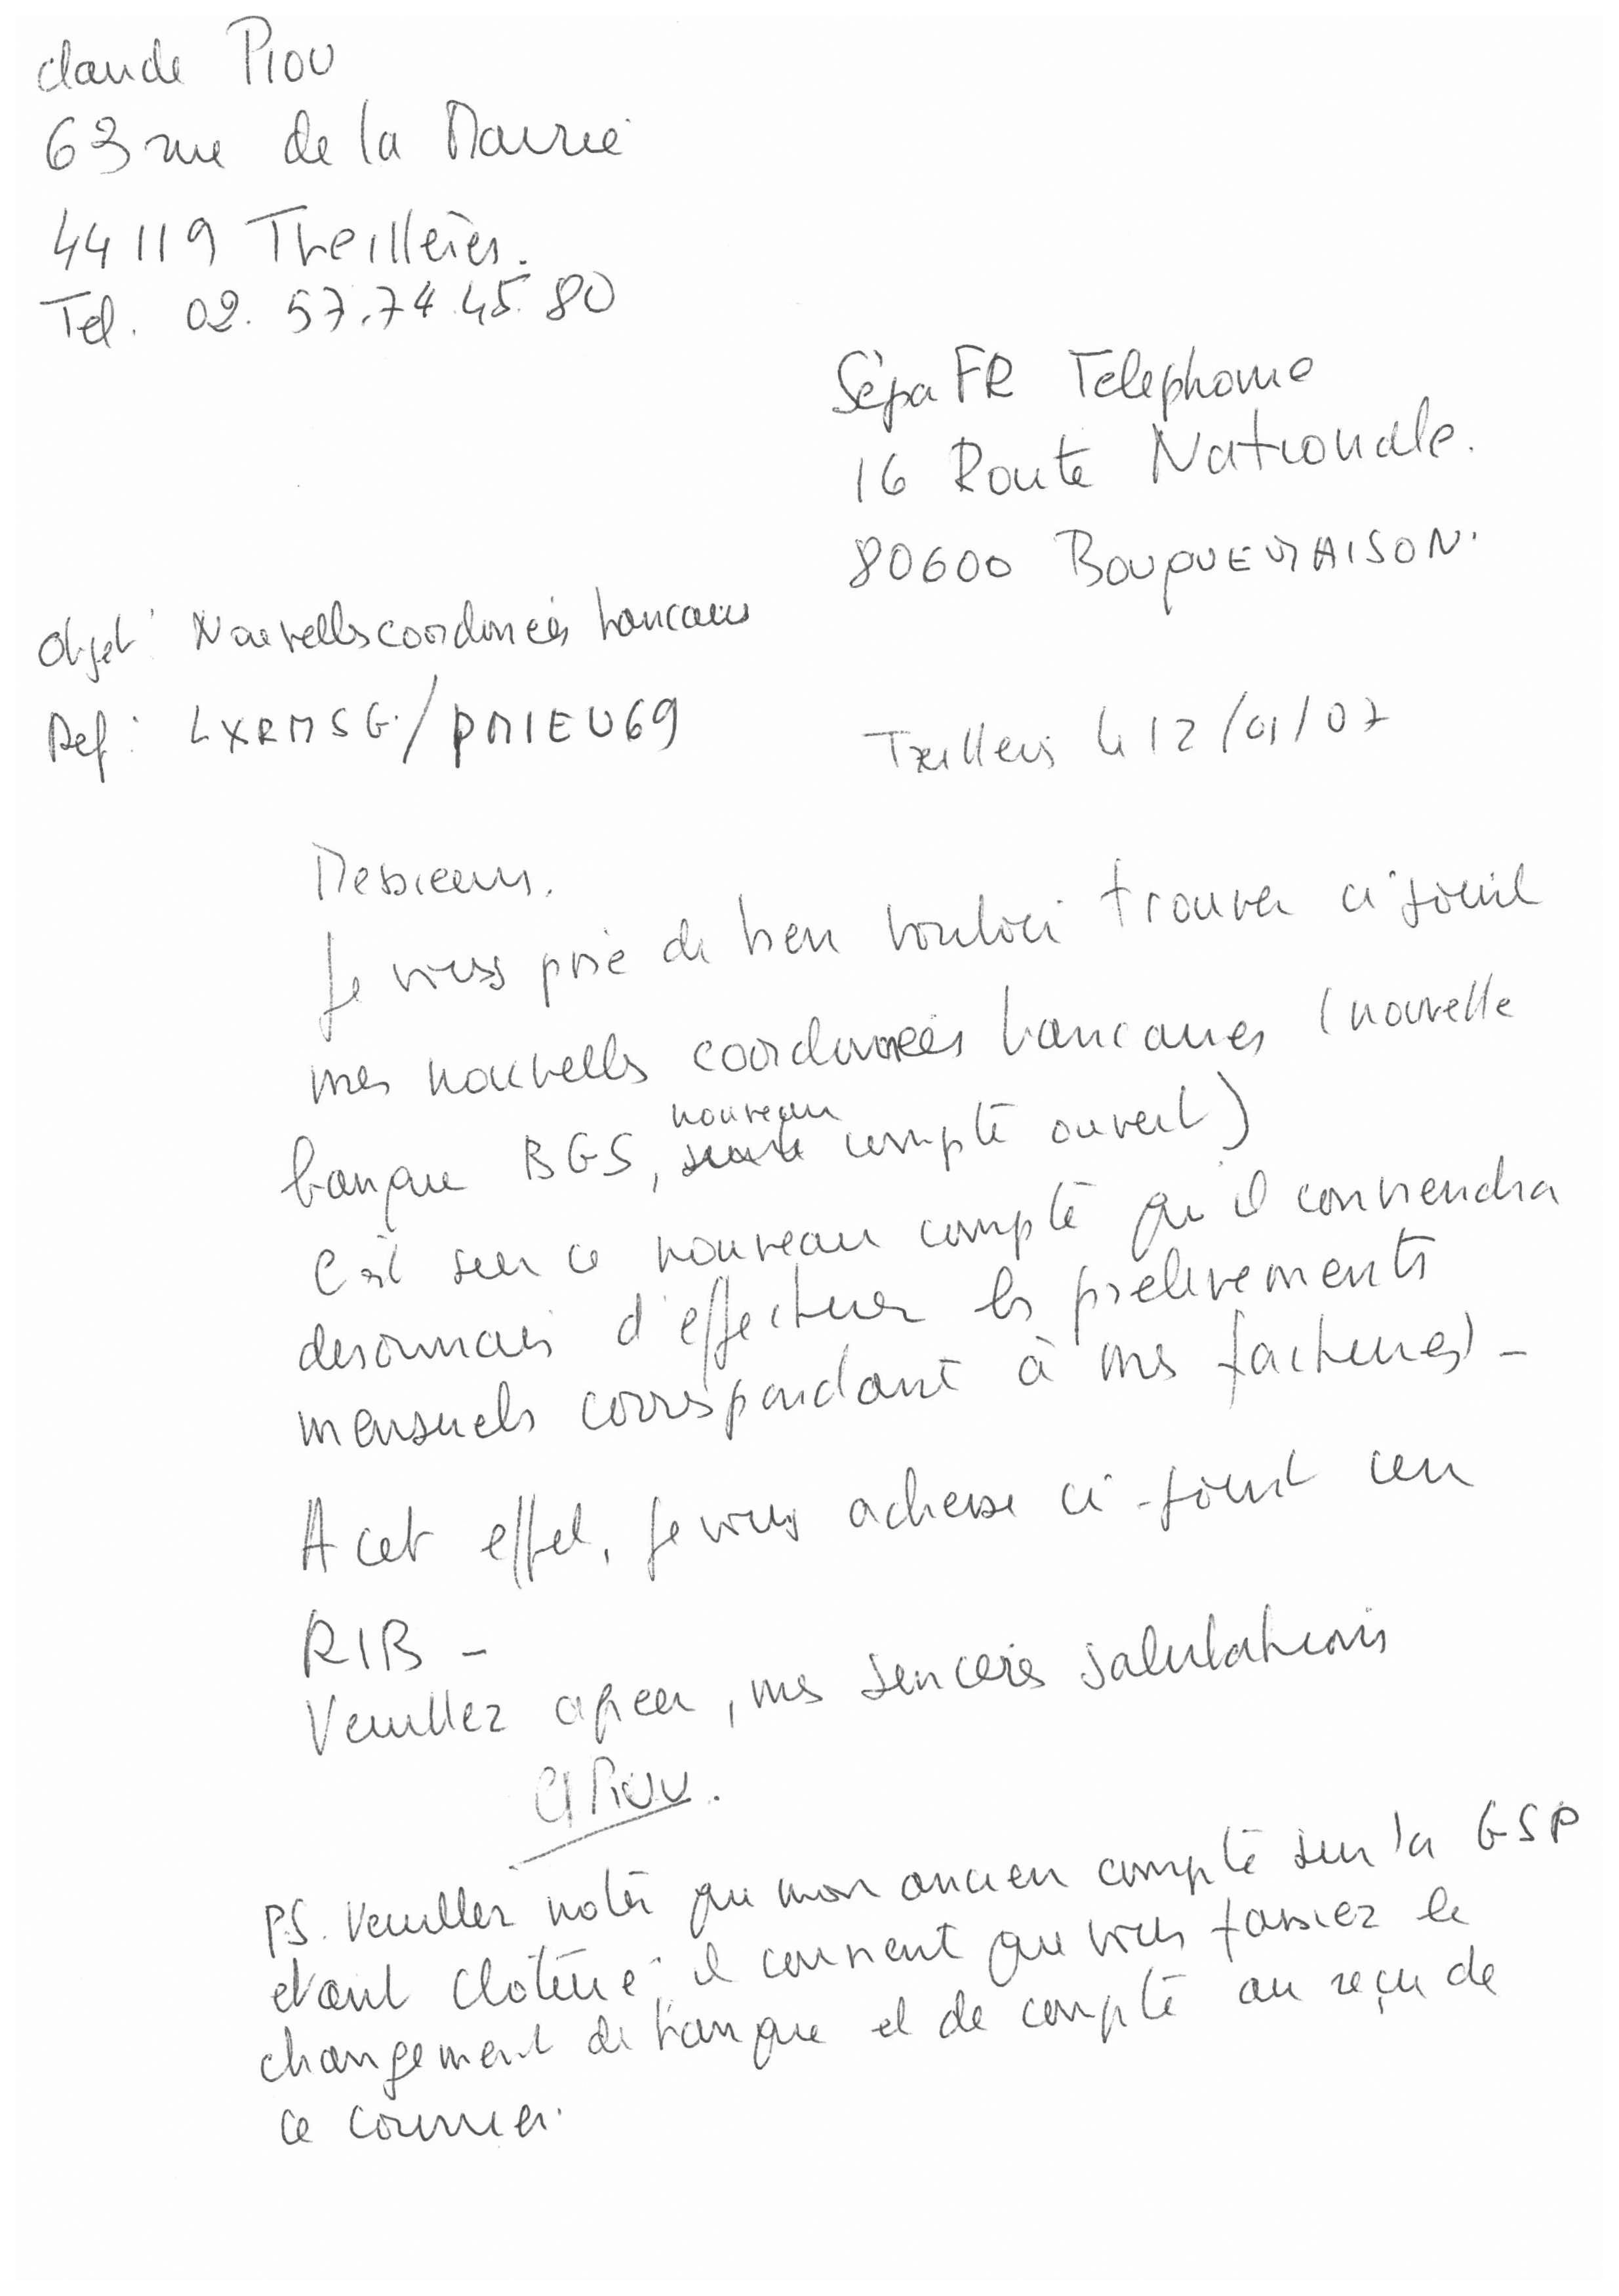 Claude PIOU
63 rue de la Mairie
44119 Treillères.
Tel. 02. 57.74.45.80
Sépa FR Telephone
16 Route Nationale.
80600 BOUQUEMAISON.
Objet : Nouvelles coordonnées bancaires
Ref : LXRMSG/PMIEU69
Treillères le 12/01/07
Messieurs.
Je vous prie de bien vouloir trouver ci-joint
mes nouvelles coordonnées bancaires (nouvelle
banque BGS, nouveau compte ouvert)
C'est sur ce nouveau compte qu'il conviendra
desormais d'effectuer les prelevements
mensuels correspondant à mes factures) -
A cet effet, je vous adresse ci-joint un
RIB -
Veuillez agreer, mes sinceres salutations
Cl PIOU.
PS. Veuillez noter que mon ancien compte sur la GSP
etant cloturé, il convient que vous fassiez le
changement de banque et de compte au reçu de
ce courrier.